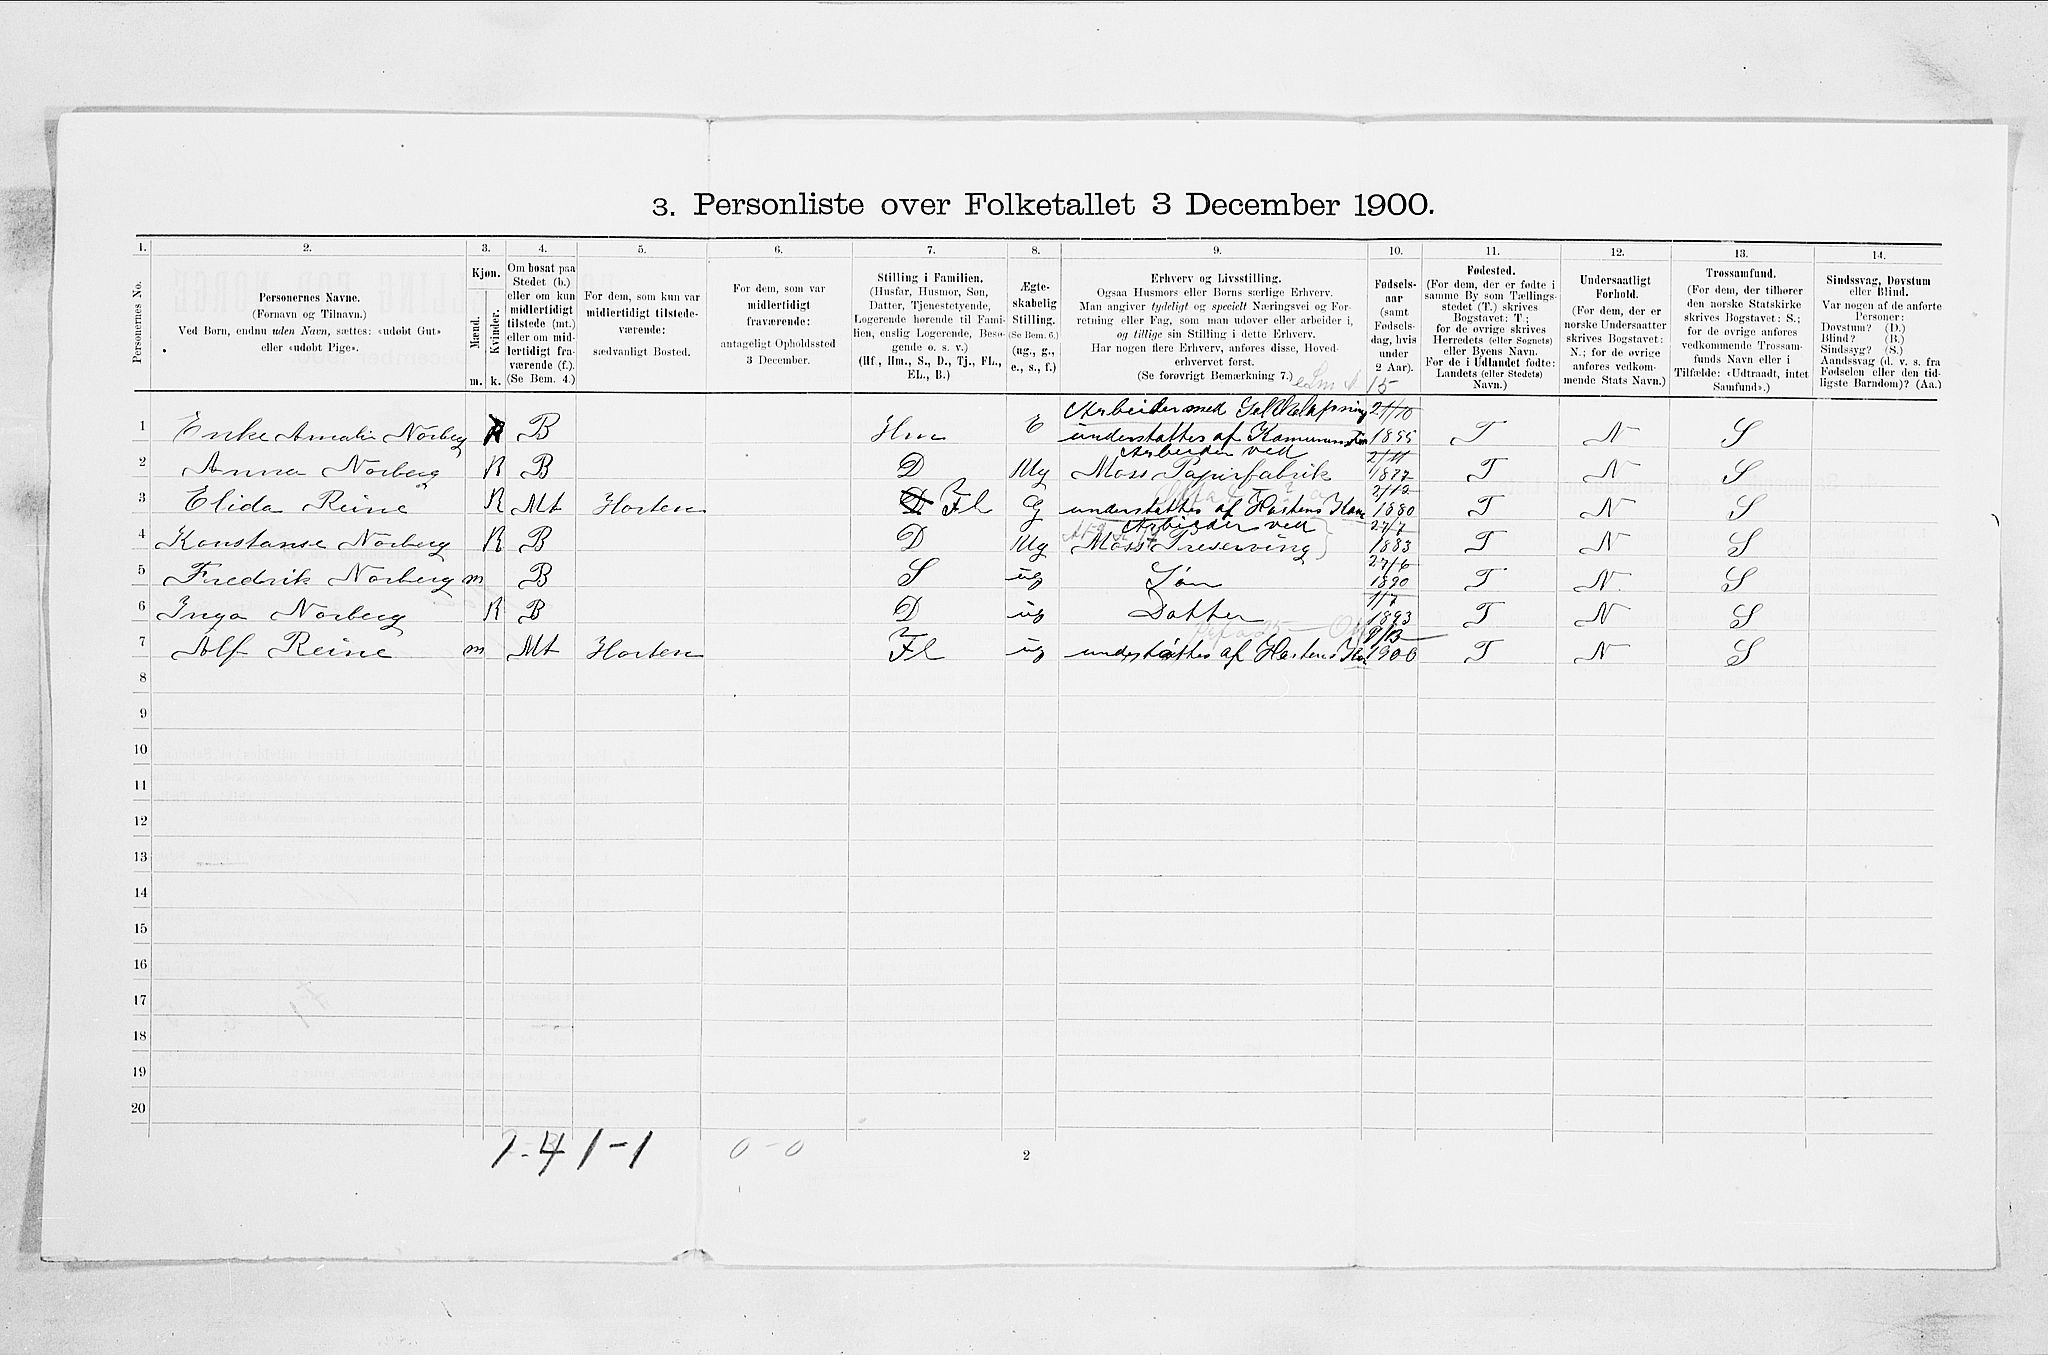 3. Personliste over Folketallet 3 December 1900.
1. 2. 3. 4. 5. 6. 7. 8. 9. 10. 11. 12. 13. 14.
Personernes No.
Personernes Navne.
(Fornavn og Tilnavn.)
Ved Børn, endnu uden Navn, sættes: «udøbt Gut»
eller «udøbt Pige».
Kjøn.
Mænd.
Kvinder.
m. k.
Om bosat paa
Stedet (b.)
eller om kun
midlertidigt
tilstede (mt.)
eller om mid-
lertidigt fra-
værende (f.).
(Se Bem. 4.)
For dem, som kun var
midlertidigt tilstede-
værende:
sædvanligt Bosted.
For dem, som var
midlertidigt
fraværende:
antageligt Opholdssted
3 December.
Stilling i Familien.
(Husfar, Husmor, Søn,
Datter, Tjenestetyende,
Logerende hørende til Fami-
lien, enslig Logerende, Besø-
gende o. s. v.)
(Hf., Hm., S., D., Tj., FL.,
EL., B.)
Ægte-
skabelig
Stilling.
(Se Bem. 6.)
(ug., g.,
e., s., f.)
Erhverv og Livsstilling.
Ogsaa Husmors eller Børns særlige Erhverv.
Man angiver tydeligt og specielt Næringsvei og For-
retning eller Fag, som man udøver eller arbeider i,
og tillige sin Stilling i dette Erhverv.
Har nogen flere Erhverv, anføres disse, Hoved-
erhvervet først.
(Se forøvrigt Bemærkning 7.)
15
Fødsels-
aar
(samt
Fødsels-
dag, hvis
under
2 Aar).
Fødested.
(For dem, der er fødte i
samme By som Tællings-
stedet (T.) skrives
Bogstavet: T.;
for de øvrige skrives
Herredets (eller Sognets)
eller Byens Navn.
For de i Udlandet fødte:
Landets (eller Stedets)
Navn.)
Undersaatligt
Forhold.
(For dem, der er
norske Undersaatter
skrives Bogstavet:
N.; for de øvrige
anføres vedkom-
mende Stats Navn.)
Trossamfund.
(For dem, der tilhører
den norske Statskirke
skrives Bogstavet: S.;
for de øvrige anføres
vedkommende Trossam-
funds Navn eller i
Tilfælde: «Udtraadt, intet
Samfund».)
Sindssvag, Døvstum
eller Blind.
Var nogen af de anførte
Personer:
Døvstum? (D.)
Blind? (B.)
Sindssyg? (S.)
Aandssvag (d. v. s. fra
Fødselen eller den tid-
ligste Barndom)? (Aa.)
Arbeider med 21/10
1 Enke Amalie Norberg K B Hm E understøttes af 1855 T N S
Arbeider ved 2/11
2 Anna Norberg K B D Ug Moss Papirfabrik 1877 T N S
2/12
3 Elida Reine K Mt Horten D Fl G understøttes af Hortens 1880 T N S
Arbeider ved 27/7
4 Konstanse Norberg K B D Ug Moss Preserving 1883 T N S
27/6
5 Fredrik Norberg m B S ug Søn 1890 T N. S
1/7
6 Inga Norberg K B D ug Datter 1893 T N S
7 Alf Reine m Mt Horten Fl ug understøttes af Hortens 1900 T N S
8
9
10
11
12
13
14
15
16
17
18
19
20
7-4 1-1 0-0
2